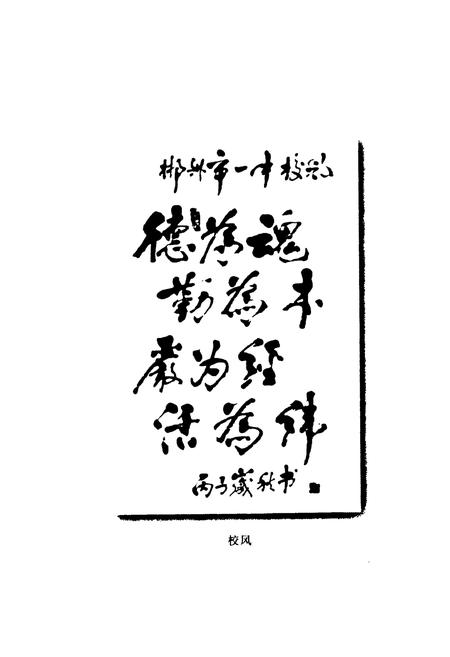 郴州市一中校
德為魂
勤為本
嚴为經
活為緯
丙子歲秋书
校风